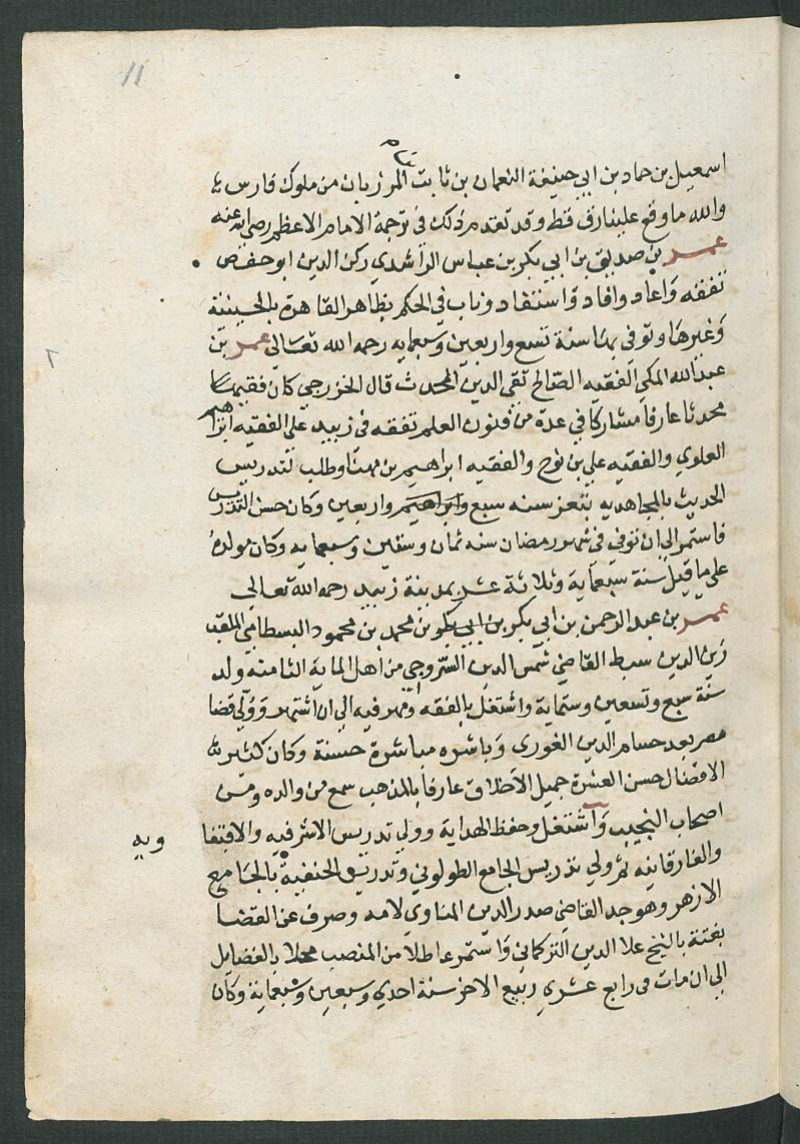 11
اسمعيل بن حماد بن ابي حنيفة النعمان بن ثابت المرزبان من ملوك فارس
والله ما وقع علينا رق قط وقد تقدم ذلك في ترجمة الامام الاعظم رضي الله عنه
عمر بن صديق بن ابي بكر بن عباس الراشدي ركن الدين ابو حفص
تفقه واعاد وافاد واستفاد وناب في الحكم بظاهر القاهرة بالحسينية
وغيرها وتوفي بها سنة تسع واربعين وسبعمايه رحمه الله تعالى عمر بن
عبد الله المكي الفقيه الصالح تقي الدين المحدث قال الخزرجي كان فقيها
محدثا عارفا مشاركا في عدة من فنون العلم تفقه في زبيد على الفقيه ابراهيم
العلوي والفقيه علي بن نوح والفقيه ابراهيم بن مهنا وطلب لتدريس
الحديث بالمجاهديه بتعز سنه سبع وابراهيم واربعين وكان حسن التدريس
فاستمر الى ان توفي في شهر رمضان سنه ثمان وستين وسبعمايه وكان مولده
على ما قيل سنة سبعماية وثلاثة عشر بمدينة زبيد رحمه الله تعالى
عمر بن عبد الرحمن بن ابي بكر بن ابي بكر بن محمد بن محمود البسطامي الملقب
زين الدين سبط القاضي شمس الدين السروجي من اهل الماية الثامنه ولد
سنة سبع وتسعين وستماية واشتغل بالفقه ومهر فيه الى ان اشتهر وولي قضا
مصر بعد حسام الدين الغوري وباشره مباشرة حسنة وكان كثير
الافضال حسن العشرة جميل الاخلاق عارفا بالمذهب سمع من والده ومن
اصحاب النجيب واشتغل وحفظ الهداية وولي تدريس الاشرفيه والاقبغا
ويه
والفارقانيه ثم ولي تدريس الجامع الطولوني وتدريس الحنفية بالجامع
الازهر وهو جد القاضي صدر الدين المناوي لامه وصرف عن القضا
بغتة بالشيخ علا الدين التركماني واستمر عاطلا من المنصب محلا بالفضايل
الى ان مات في رابع عشري ربيع الاخر سنة احدي وسبعين وسبعماية وكان